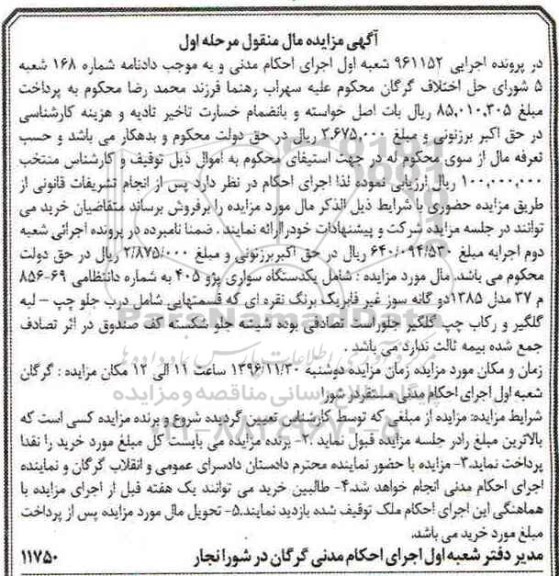 آگهی مزایده مال منقول مرحله اول
در پرونده اجرایی ۹۶۱۱۵۲ شعبه اول اجرای احکام مدنی و به موجب دادنامه شماره ۱۶۸ شعبه
۵ شورای حل اختلاف گرگان محکوم علیه سهراب رهنما فرزند محمد رضا محکوم به پرداخت
مبلغ ۸۵,۰۱۰,۳۰۵ ریال بات اصل خواسته و بانضمام خسارت تاخیر تادیه و هزینه کارشناسی
در حق اکبر برزنونی و مبلغ ۳,۶۷۵,۰۰۰ ریال در حق دولت محکوم و بدهکار می باشد و حسب
تعرفه مال از سوی محکوم له در جهت استیفای محکوم به اموال ذیل توقیف و کارشناس منتخب
۱۰۰,۰۰۰,۰۰۰ ریال ارزیابی نموده لذا اجرای احکام در نظر دارد پس از انجام تشریفات قانونی از
طریق مزایده حضوری با شرایط ذیل الذکر مال مورد مزایده را برفروش برساند متقاضیان خرید می
توانند در جلسه مزایده شرکت و پیشنهادات خودراارائه نمایند . ضمنا نامبرده در پرونده اجرائی شعبه
دوم اجرایه مبلغ ۶۴۰/۰۹۴/۵۲۰ ریال در حق اکبربرزنونی و مبلغ ۲/۸۷۵/۰۰۰ ریال در حق دولت
محکوم می باشد. مال مورد مزایده : شامل یکدستگاه سواری پژو ۴۰۵ به شماره دانتظامی ۶۹-۸۵۶
م ۳۷ مدل ۱۳۸۵دو گانه سوز غیر فابریک برنگ نقره ای که قسمتهایی شامل درب جلو چپ – لبه
گلگیر و رکاب چپ گلگیر جلوراست تصادفی بوده شیشه جلو شکسته کف صندوق در اثر تصادف
جمع شده بیمه ثالث ندارد می باشد .
زمان و مکان مورد مزایده زمان مزایده دوشنبه ۱۳۹۶/۱۱/۳۰ ساعت ۱۱ الی ۱۲ مکان مزایده : گرگان
شعبه اول اجرای احکام مدنی مستقردر شورا
شرایط مزایده: مزایده از مبلغی که توسط کارشناس تعیین گردیده شروع و برنده مزایده کسی است که
بالاترین مبلغ رادر جلسه مزایده قبول نماید .۲- برنده مزایده می بایست کل مبلغ مورد خرید را نقدا
پرداخت نماید.۳- مزایده با حضور نماینده محترم دادستان دادسرای عمومی و انقلاب گرگان و نماینده
اجرای احکام مدنی انجام خواهد شد.۴- طالبین خرید می توانند یک هفته قبل از اجرای مزایده با
هماهنگی این اجرای احکام ملک توقیف شده بازدید نمایند.۵- تحویل مال مورد مزایده پس از پرداخت
مبلغ مورد خرید می باشد.
مدیر دفتر شعبه اول اجرای احکام مدنی گرگان در شورا نجار ۱۱۷۵۰
ParsNamadData
پایگاه اطلاع رسانی مناقصه و مزایده